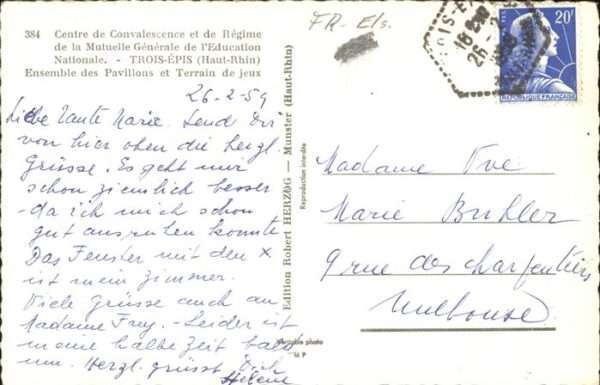 384 Centre de Convalescence et de Régime
de la Mutuelle Générale de l'Education
Nationale. - TROIS-ÉPIS (Haut-Rhin)
Ensemble des Pavillons et Terrain de jeux
26-2-59
Liebe Tante Marie. Send Dir
von hier oben die herzl.
Grüsse. Es geht mir
schon ziemlich besser
- da ich mich schon
gut ausruhen konnte
Das Fenster mit den x
ist mein Zimmer.
Viele Grüsse auch an
Madame Frey. - Leider ist
meine halbe Zeit bald
um. Herzl. grüsst Dich
Hélène
Edition Robert HERZOG — Munster (Haut-Rhin)
Reproduction interdite
Véritable photo
FR-Els.
TROIS-E
18 H
26-2
20F
REPUBLIQUE FRANÇAISE
Madame Vve
Marie Buhler
9 rue des charpentiers
Mulhouse